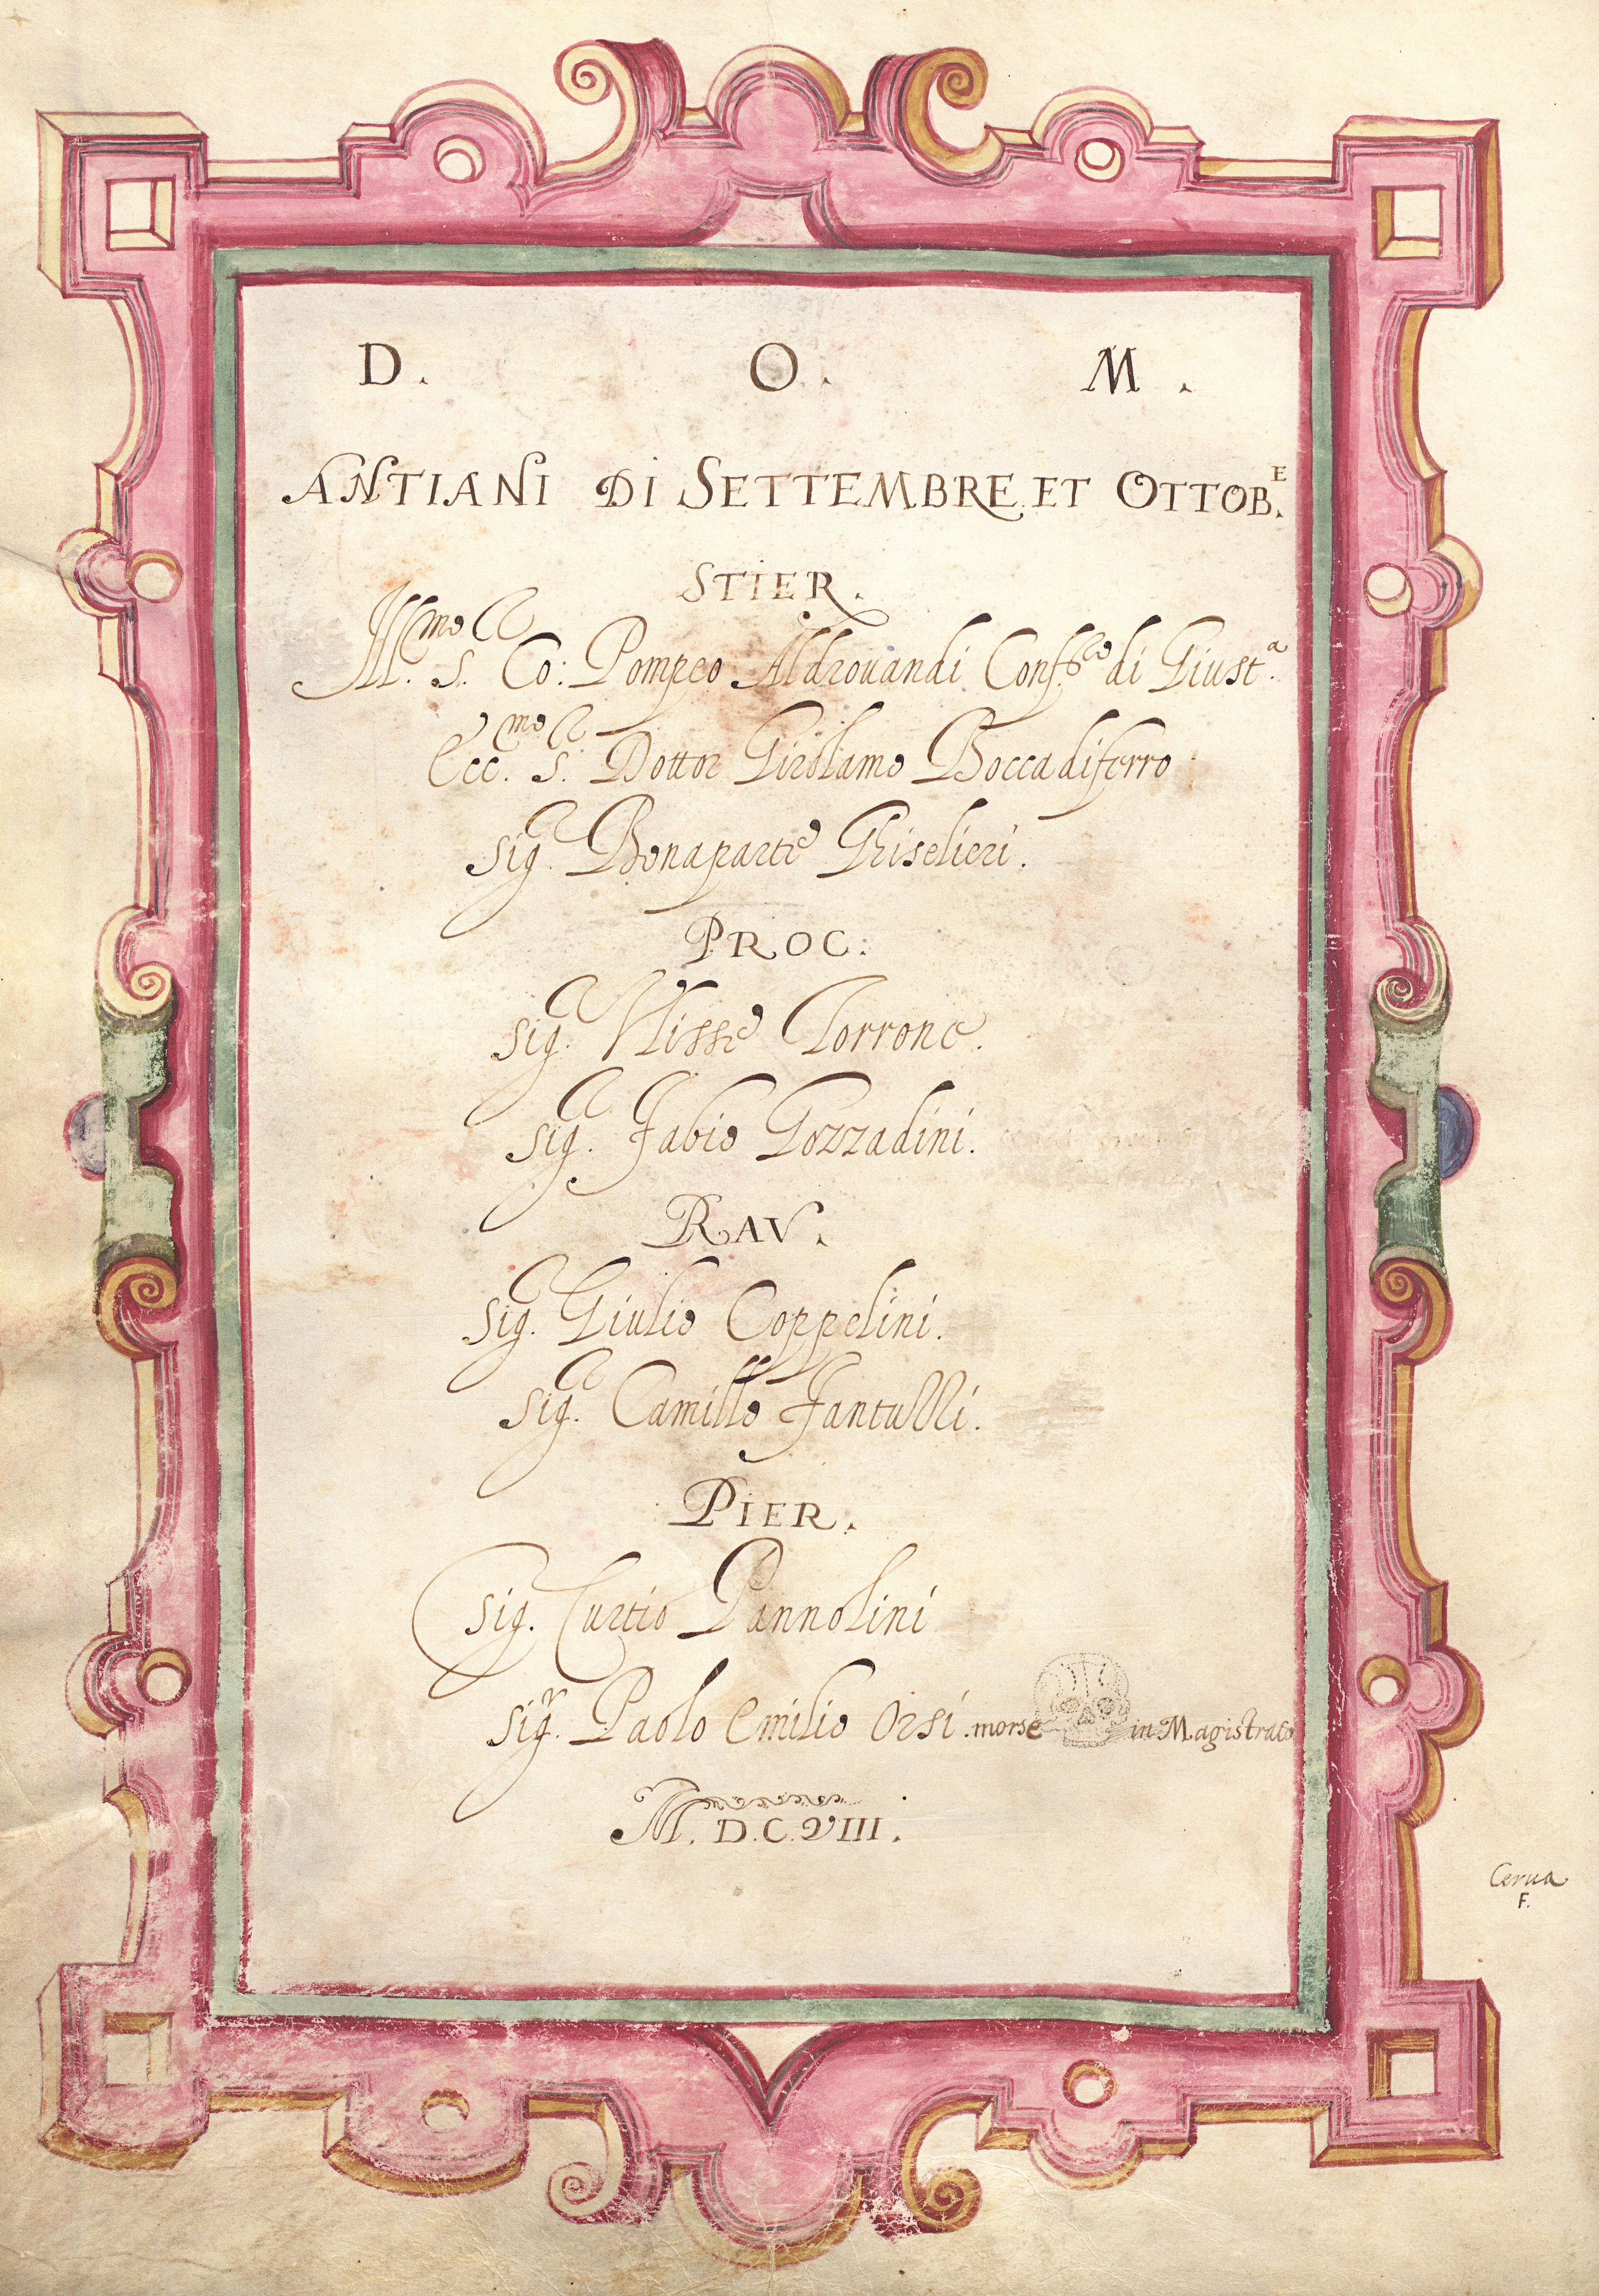 D. O. M.
ANTIANI DI SETTEMBRE ET OTTOB.E
STIER.
Ill.mo S. Co: Pompeo Aldrouandi Conf.re di Giust.a
Ecc.mo S. Dottor Girolamo Boccadiferro
Sig. Bonaparte Ghiselieri.
PROC:
Sig. Vlisse Torrone.
Sig. Fabio Gozzadini.
RAV.
Sig. Giulio Coppelini.
Sig. Camillo Fantulli.
PIER.
Sig. Curtio Pannolini
Sig.r Paolo Emilio Orsi. morse in Magistrato
M. D. C. VIII.
Cerua
F.